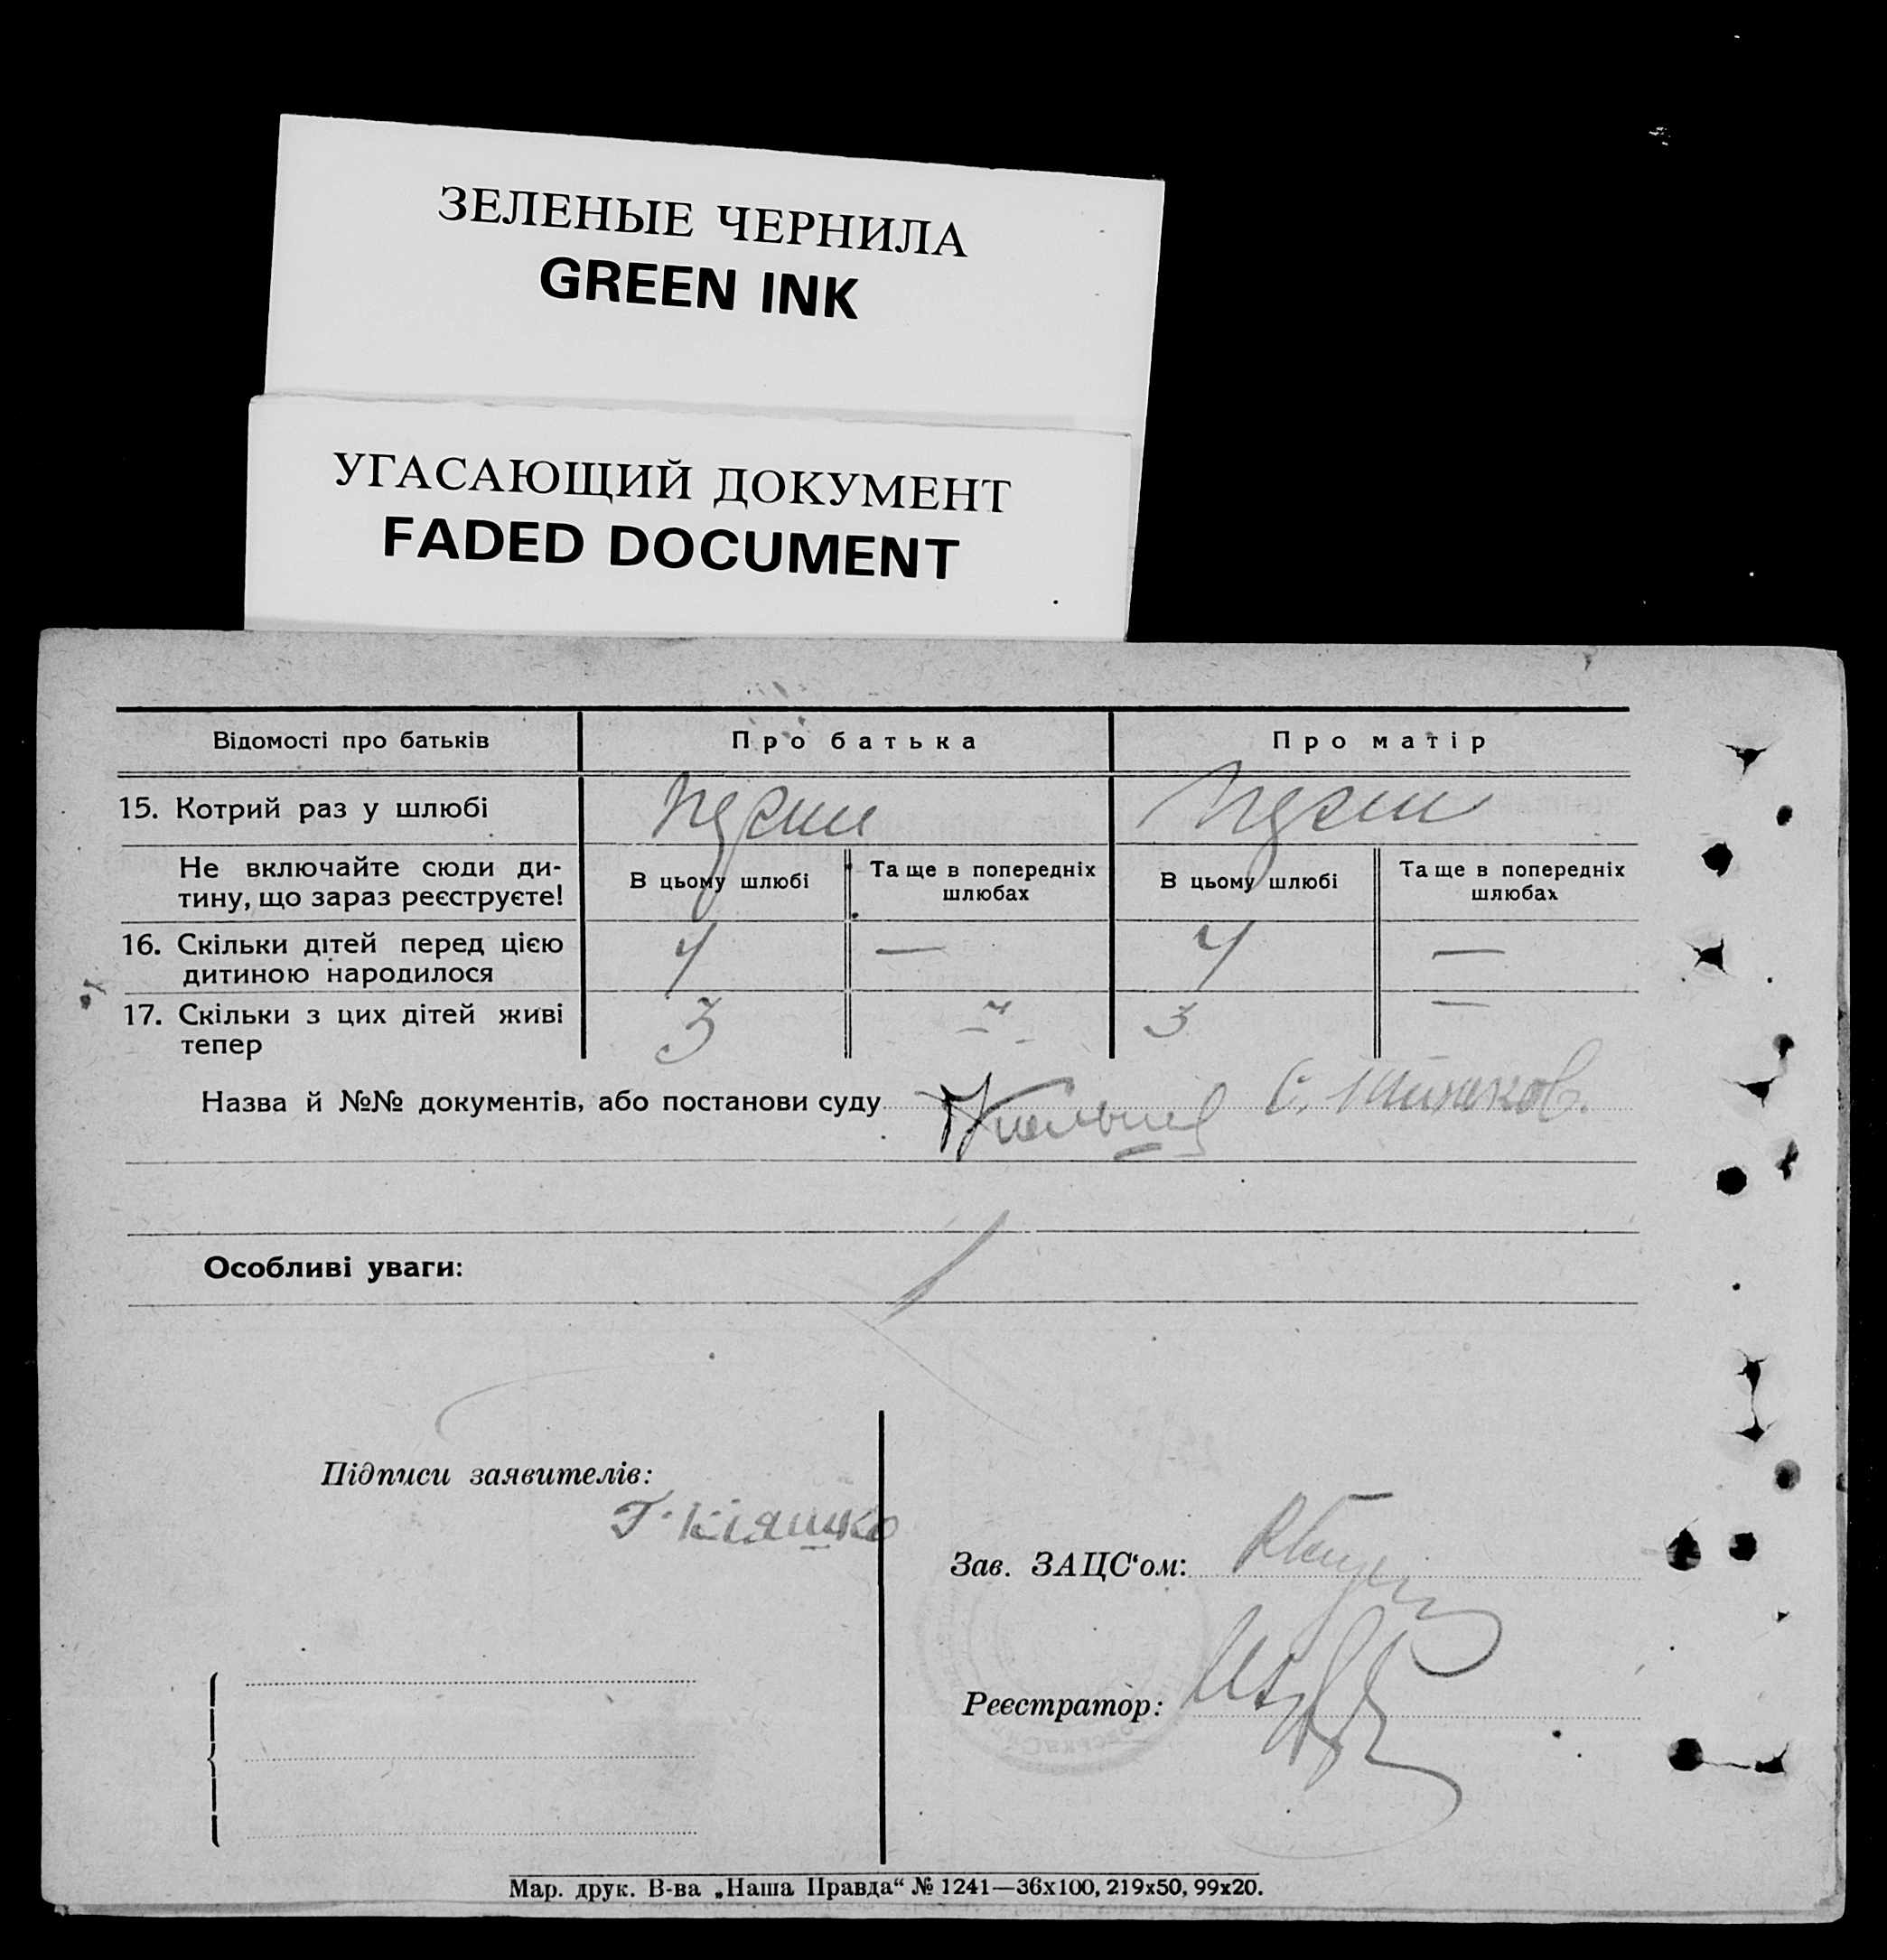 ЗЕЛЕНЫЕ ЧЕРНИЛА
GREEN INK
УГАСАЮЩИЙ ДОКУМЕНТ
FADED DOCUMENT
Відомості про батьків Про батька Про матір
15. Котрий раз у шлюбі
Не включайте сюди ди-
тину, що зараз реєструєте!
В цьому шлюбі
Та ще в попередніх
шлюбах
В цьому шлюбі
Та ще в попередніх
шлюбах
16. Скільки дітей перед цією
дитиною народилося
4 — 4 —
17. Скільки з цих дітей живі
тепер
3 — 3 —
Назва й №№ документів, або постанови суду
Особливі уваги:
Підписи заявителів:
Г. Кіяшко
Зав. ЗАЦС‘ом:
Реєстратор:
Мар. друк. В-ва „Наша Правда“ № 1241—36х100, 219х50, 99х20.